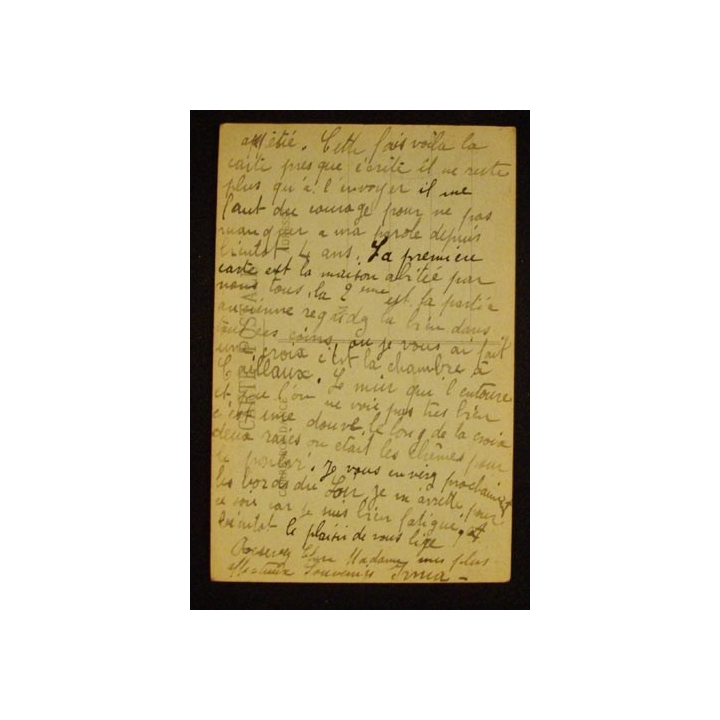 amitié. Cette fois voila la
carte presque écrite il ne reste
plus qu'a l'envoyer il me
faut du courage pour ne pas
manquer a ma parole depuis
bientot 4 ans. La première
carte est la maison abitée par
nous tous, la 2ème est la partie
ancienne regardez la bien dans
ces coins où je vous ai fait
une croix c'est la chambre à
Caillaux. Le mur qui l'entoure
et que l'on ne voie pas tres bien
c'est une douve, le long de la croix
deux raies ou etait les chênes pour
le . Je vous enverai prochainemt
les bords du Loir, je m'arrette pour
ce soir car je suis bien fatigué, et
bientot le plaisir de vous lire
Recevez Chère Madame mes plus
affectueux Souvenirs Irma -
CARTE POSTALE